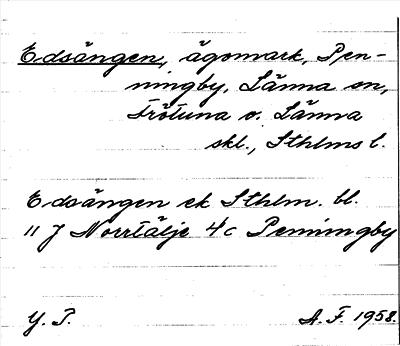 Edsängen, ägomark, Pen-
ningby, Länna sn,
Frötuna o. Länna
skl., Sthlms l.
Edsängen ek Sthlm. bl.
11 J Norrtälje 4/c Penningby
Y. P. A. F. 1958.